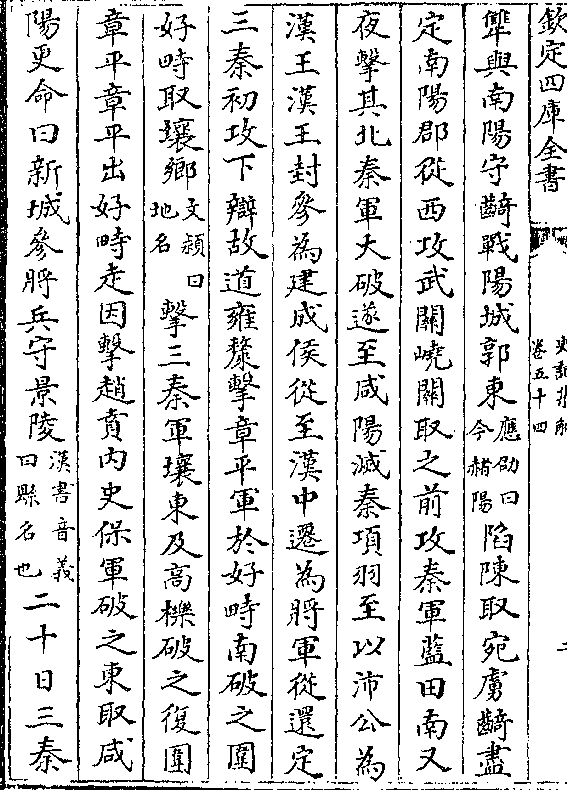 欽定四庫全書
史記集解
卷五十四
犨與南陽守齮戰陽城郭東應劭曰今赭陽陷陳取宛虜齮盡
定南陽郡從西攻武關嶢關取之前攻秦軍藍田南又
夜擊其北秦軍大破遂至咸陽滅秦項羽至以沛公為
漢王漢王封參為建成侯從至漢中遷為將軍從還定
三秦初攻下辯故道雍斄擊章平軍於好畤南破之圍
好畤取壤鄉文穎曰地名擊三秦軍壤東及高櫟破之復圍
章平章平出好畤走因擊趙賁内史保軍破之東取咸
陽更命曰新城參將兵守景陵漢書音義曰縣名也二十日三秦